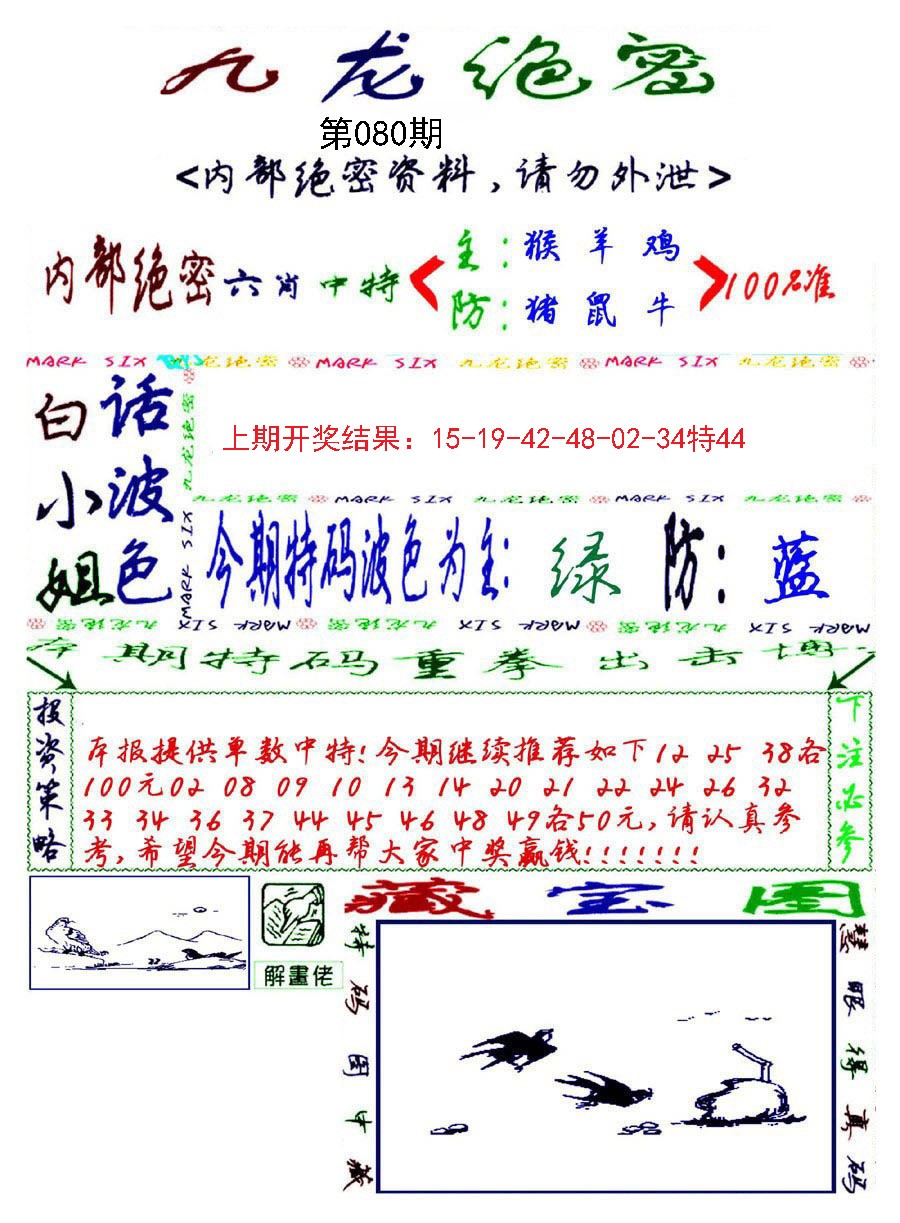 九龙绝密
第080期
<内部绝密资料,请勿外泄>
内部绝密六肖中特
主:猴羊鸡
防:猪鼠牛
100%准
MARK SIX 九龙绝密 MARK SIX 九龙绝密 MARK SIX 九龙绝密
白小姐
话波色
九龙绝密
MARK SIX
上期开奖结果：15-19-42-48-02-34特44
九龙绝密 MARK SIX 九龙绝密 MARK SIX 九龙绝密
今期特码波色为主:绿 防:蓝
九龙绝密 MARK SIX 九龙绝密 MARK SIX 九龙绝密 MARK SIX
本期特码重拳出击博
投资策略
本报提供单数中特!今期继续推荐如下12 25 38各
100元02 08 09 10 13 14 20 21 22 24 26 32
33 34 36 37 44 45 46 48 49各50元,请认真参
考,希望今期能再帮大家中奖赢钱!!!!!!!
下注必参
解畫佬
藏宝图
特码图中藏
慧眼得真码